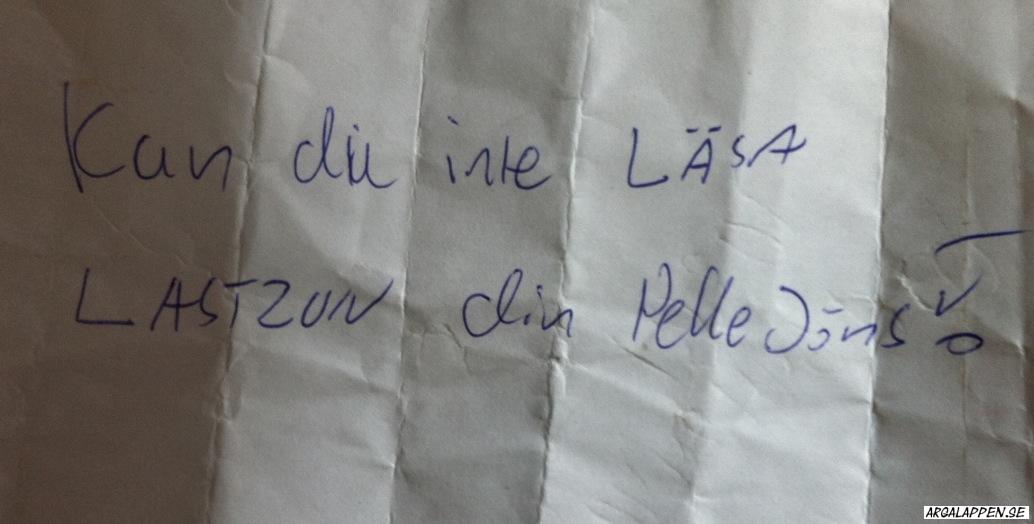 Kan du inte LÄSA
LASTZON din Pelle Jöns!
ARGALAPPEN.SE